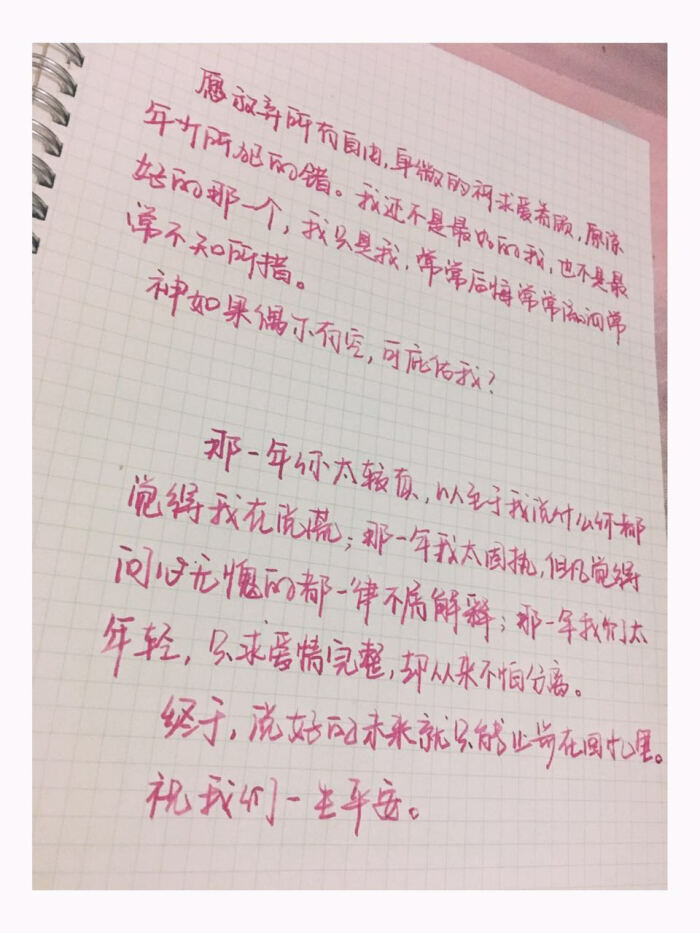 愿放弃所有自由,卑微的祈求爱眷顾,原谅
年少所犯的错。我还不是最好的我,也不是最
好的那一个,我只是我,常常后悔常常流泪常
常不知所措。
神如果偶尔有空,可庇佑我?
那一年你太较真,以至于我说什么你都
觉得我在说谎;那一年我太固执,但凡觉得
问心无愧的都一律不屑解释;那一年我们太
年轻,只求爱情完整,却从来不怕分离。
终于,说好的未来就只能止步在回忆里。
祝我们一生平安。